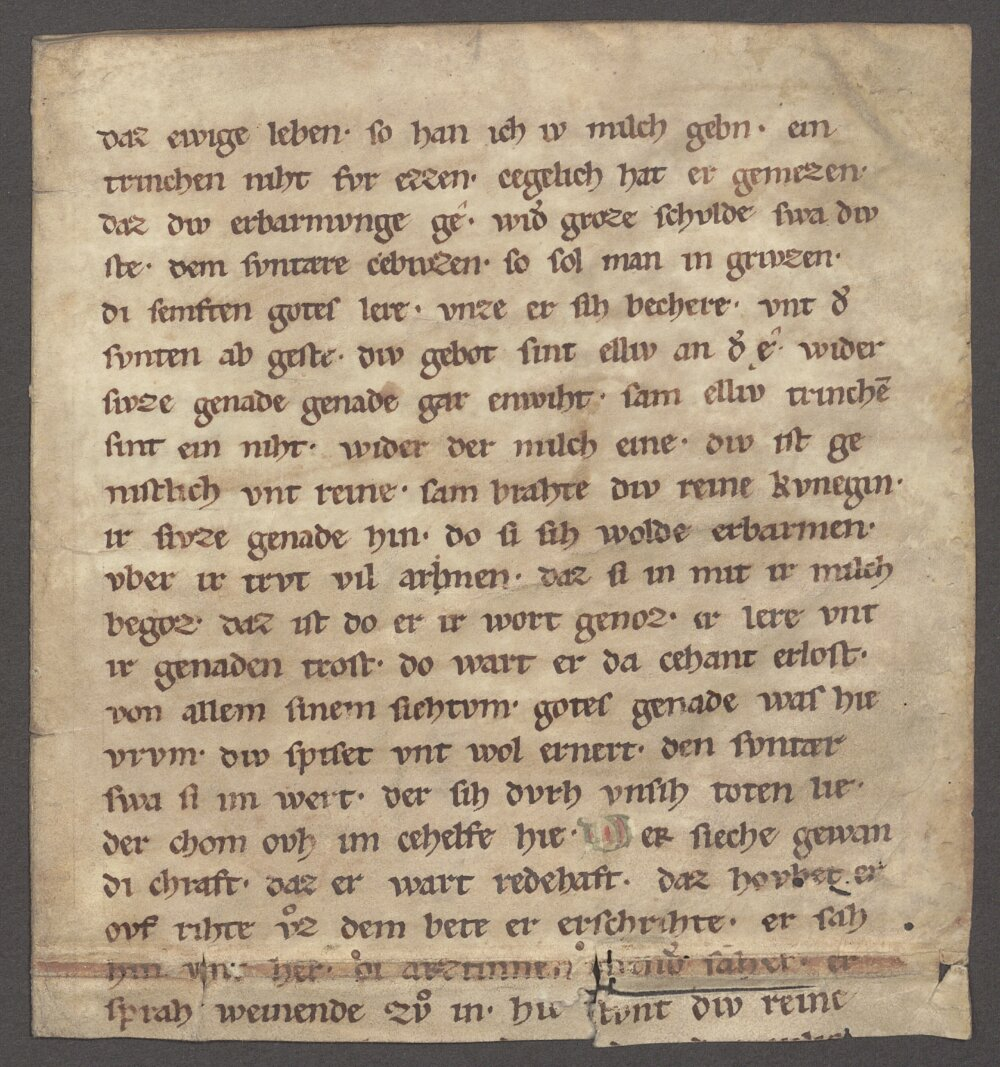 daz ewige leben· so han ich iv milch gebn· ein
trinchen niht fvr ezzen· cegelich hat er gemezen·
daz div erbarmvnge gê· wid͛ groze schvlde swa div
ste· dem svntære cebivzen· so sol man in grivzen·
di senften gotes lere· vnze er sih bechere· vnt d͛
svnten ab geste· div gebot sint elliv an d͛ ê· wider
sivze genade genade gar enwiht· sam elliv trinchē
sint ein niht· wider der milch eine· div ist ge
nistlich vnt reine· sam brahte div reine kvnegin·
ir sivze genade hin· do si sih wolde erbarmen·
vber ir trvt vil armen· daz si in mit ir milch
begoz· daz ist do er ir wort genoz· er lere vnt
ir genaden trost· do wart er da cehant erlost·
von allem sinem siehtvm· gotes genade was hie
vrvm· div spiset vnt wol ernert· den svntær
swa si im wert· der sih dvrh vnsih toten lie·
der chom ovh im cehelfe hie· Der sieche gewan
di chraft· daz er wart redehaft· daz hovbet er
ovf rihte vͦz dem bete er erschrihte· er sah
hin vnt her· di arztinnen saher· er
sprah weinende zvͦ in· hie div reine